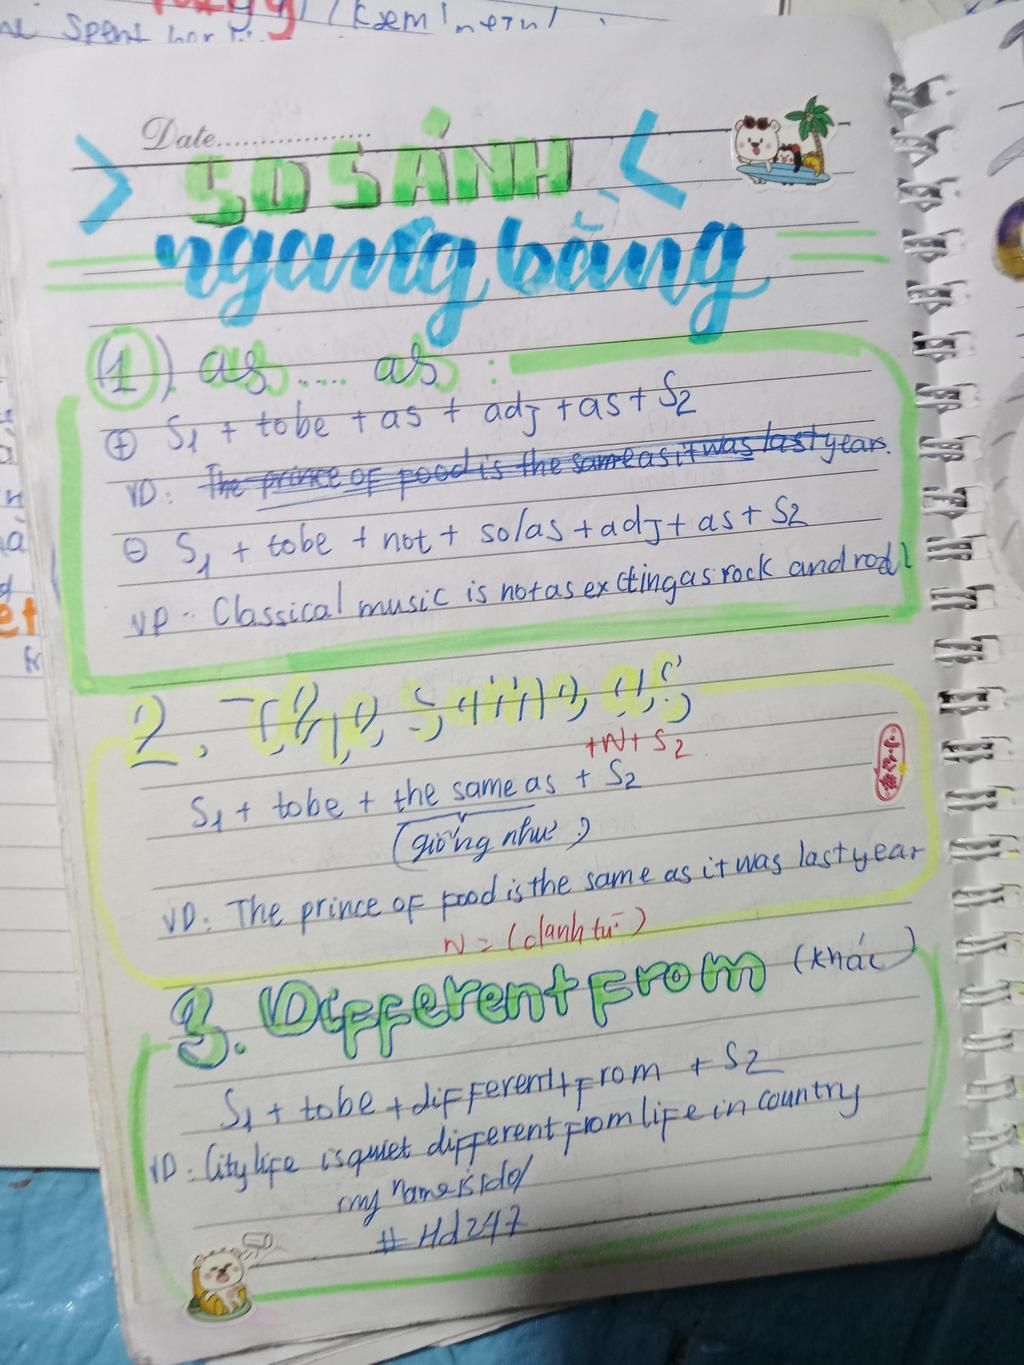 spent
Date
SO SÁNH
ngang bằng
(1) as .... as :
(+) S1 + tobe + as + adj + as + S2
VD: The prince of pood is the same as it was last years.
(-) S1 + tobe + not + so/as + adj + as + S2
VD: Classical music is not as excting as rock and
2. The same as
+N+ S2
S1 + tobe + the same as + S2
(giống như)
VD: The prince of food is the same as it was last year
N = (danh từ)
3. Different From (khác)
S1 + tobe + different + from + S2
VD: City life is quiet different from life in country
my name is
# Hd247